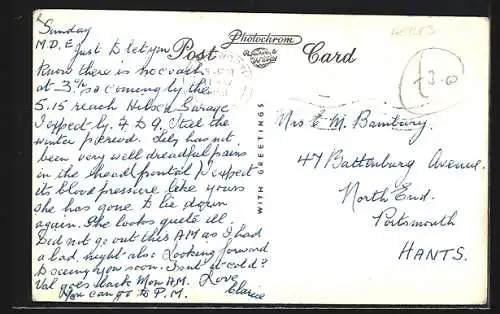 Sunday
M. D. E.
Just to let you
know there is no coach
at 3 so coming by the
5.15 reach Garage
I expect by 7. I feel the
winter period. has not
been very well dreadful pains
in the head frontal I expect
its blood pressure like yours
she has gone to lie down
again. She looks quite ill.
Did not go out this AM as I had
a bad night also. Looking forward
to seeing you soon. Isn't it cold?
Val goes back Mon AM. Love
You can go to P.M. Clarice
Photochrom
Post Card
WITH GREETINGS
Mrs E. M. Banbury
47 Battenburg Avenue.
North End.
Portsmouth
HANTS.